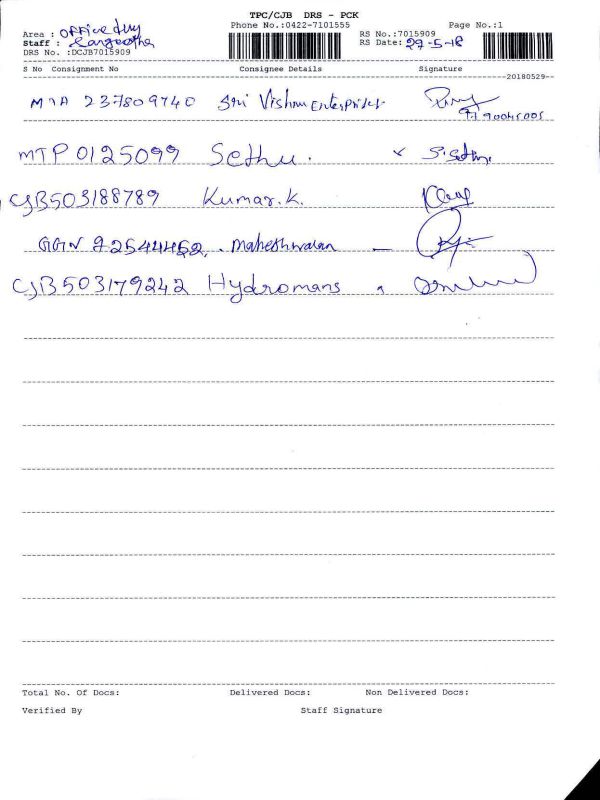 TPC/CJB DRS - PCK
Phone No.:0422-7101555 Page No.:1
Area : Office duty
RS No.:7015909
Staff : Sangeetha
RS Date: 27-5-18
DRS No. :DCJB7015909
S No Consignment No Consignee Details Signature
20180529
MTA 237809740 Sri Vishnu Enterprises
MTP 0125099 Sethu. x S.Sethu
CJB503188789 Kumar.K.
GGN 72544452. Maheshwaran
CJB503179242 Hydromans
Total No. Of Docs: Delivered Docs: Non Delivered Docs:
Verified By Staff Signature